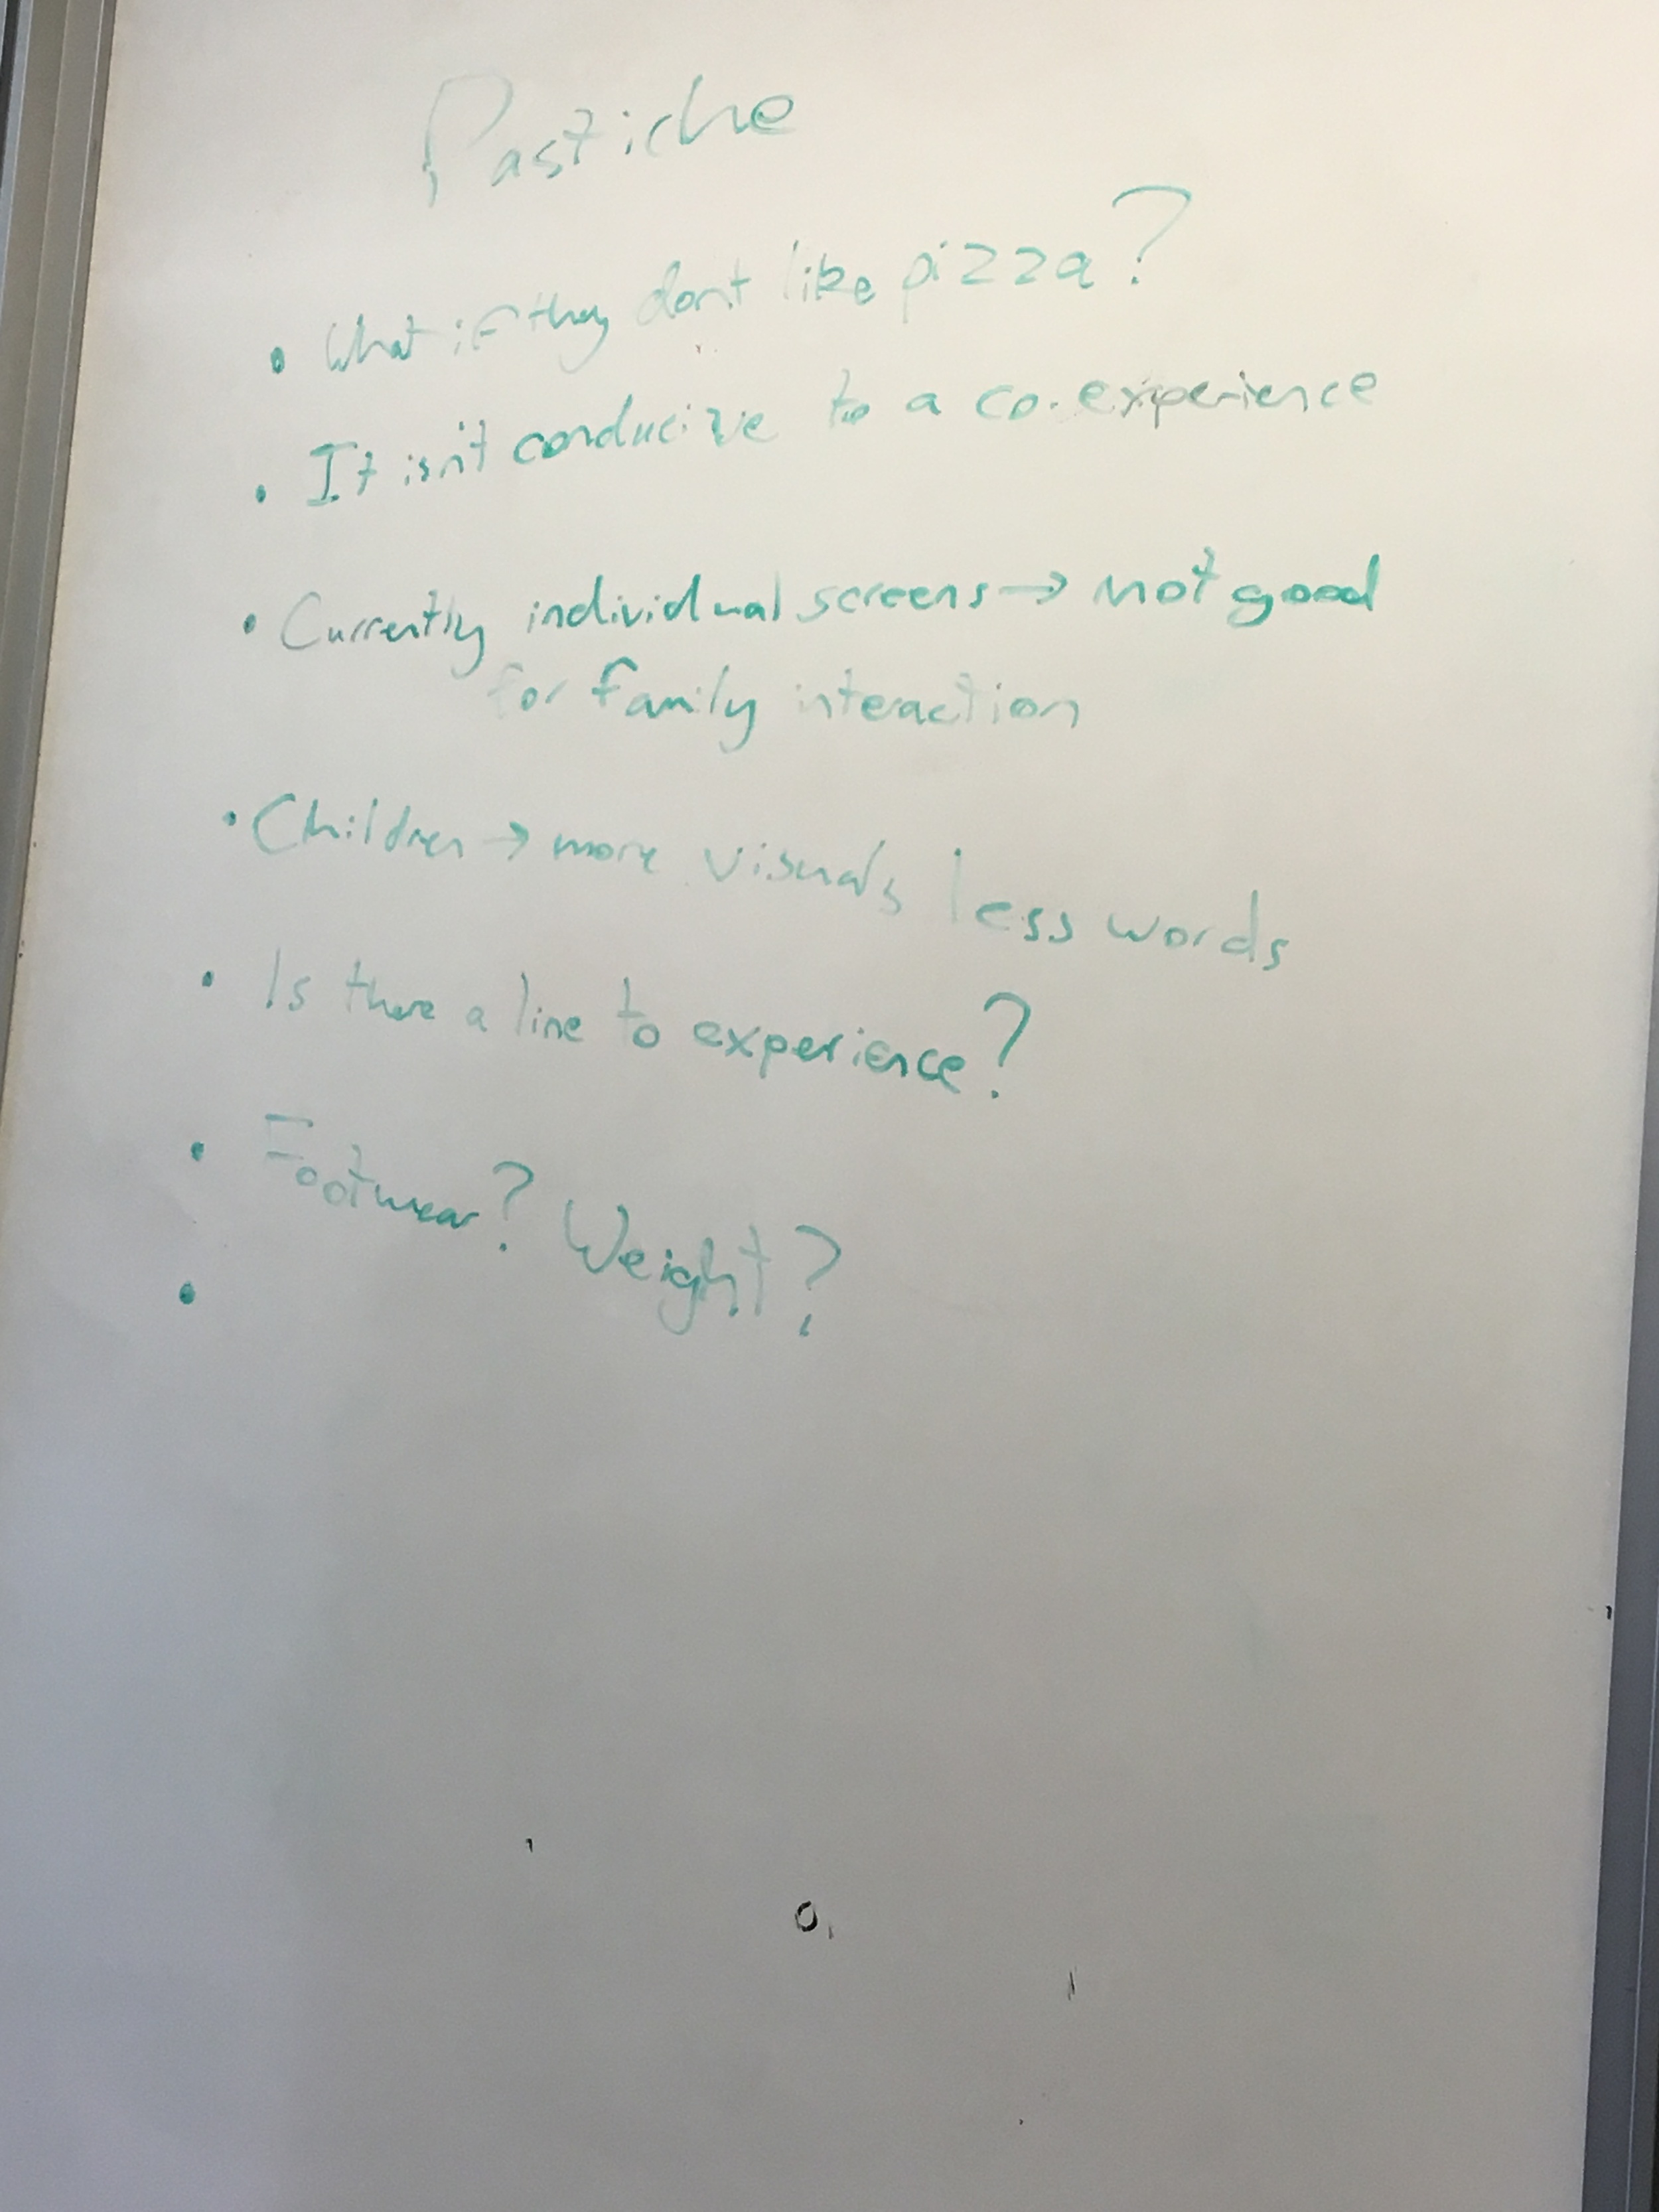 Pastiche
• What if they don't like pizza?
• It isn't conducive to a co-experience
• Currently individual screens → not good
for family interaction
• Children → more visuals less words
• Is there a line to experience?
• Footwear? Weight?
•